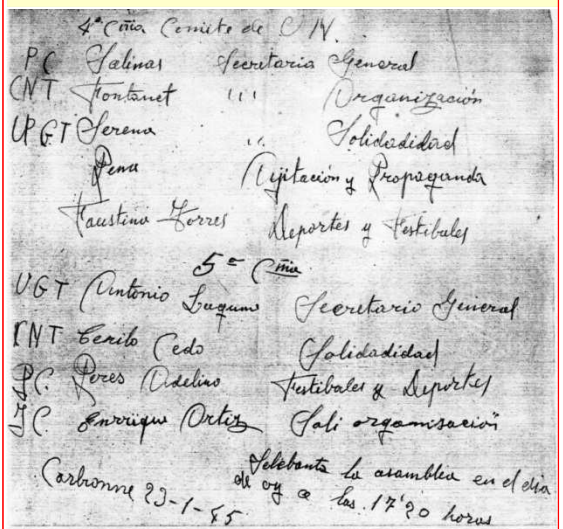 4ª Cñia Comite de U N.
PC Salinas Secretaria General
CNT Fontanet "' Organización
UPGT Serena " Solidadidad
Pena Ajitación y Propaganda
Faustino Torres Deportes y Festibales
5ª Cñia
UGT Antonio Secretario General
CNT Benito Cedo Solidadidad
P.C. Peres Adelino Festibales y Deportes
J.C. Enrrique Ortiz Soli organisación
la asamblea en el dia
Carbonne 23-1-45 de oy a las 17'20 horas